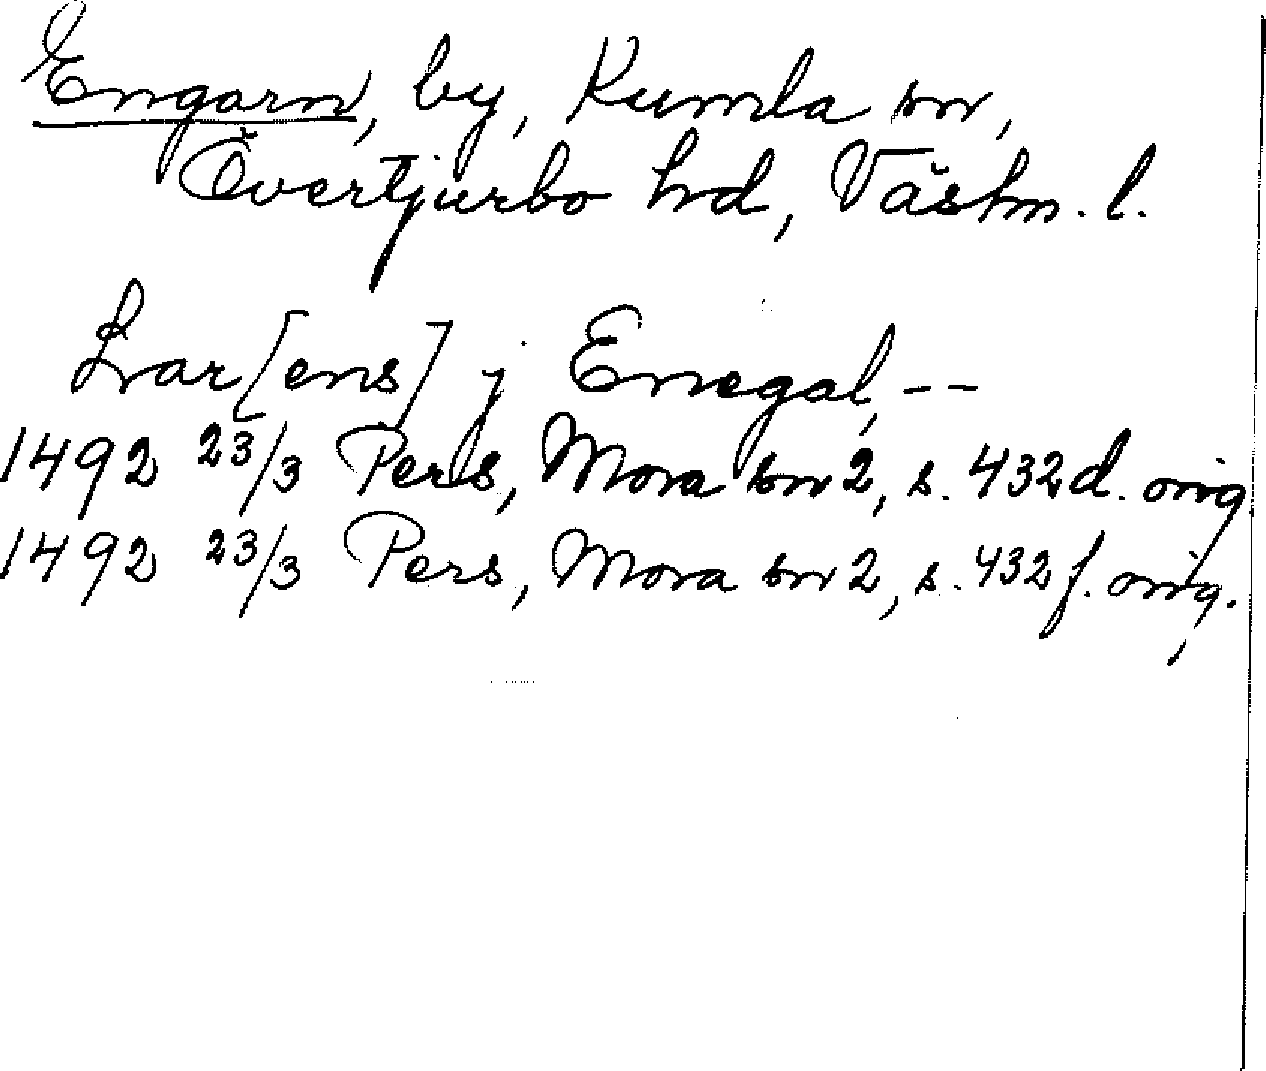 Engarn, by, Kumla sn,
Övertjurbo hd, Västm. l.
Lvar[ens] j Enegal, --
1492 23/3 Pers, Mora sn 2, s. 432 d. orig.
1492 23/3 Pers, Mora sn 2, s. 432 f. orig.